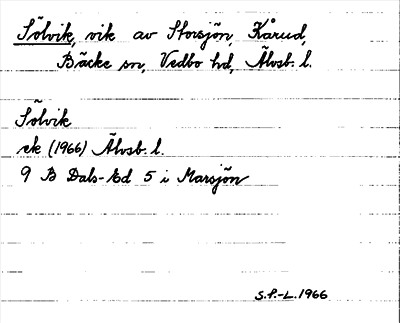 Sölvik, vik av Storsjön, Kårud,
Bäcke sn, Vedbo hd, Älvsb. l.
Sölvik
ek (1966) Älvsb. l.
9 B Dals-Ed 5 i Marsjön
S.P.-L. 1966